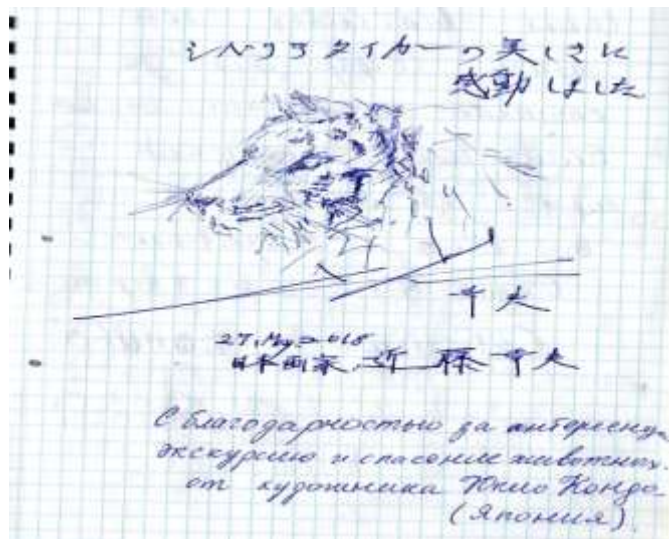 シベリアタイガーの美しさに
感動しました
幸夫
27, May 2018
日本画家 近藤幸夫
С благодарностью за интересную
экскурсию и спасение животных
от художника Юкио Кондо
(Япония).